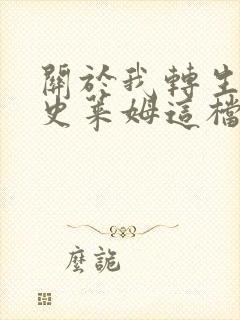 關於我轉生
史萊姆這檔
麼詭